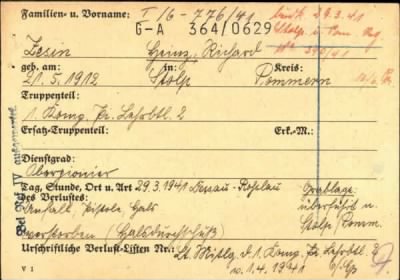 Familien- u. Vorname: I/6-776/41
G-A 364/0629
29.3.41
Stolp
Zesin Heinz, Richard
geb. am: in: Kreis:
21.5.1912 Stolp Pommern
Truppenteil:
1. Komp. Pi. Lehrbtl. 2
Ersatz-Truppenteil: Erk.-M.:
Dienstgrad:
Oberpionier
Tag, Stunde, Ort u. Art 29.3.1941 Dessau-Roßlau Grablage
des Verlustes: überführt n.
Unfall, Pistole, Hals Stolp/Pomm.
verstorben (Halsdurchschuß)
Urschriftliche Verlust-Listen Nr. Lt. Mittlg. d. 1. Komp. Pi. Lehrbtl. 2
v. 1.4.1941
V 1
Bei Ref IV ausgewertet